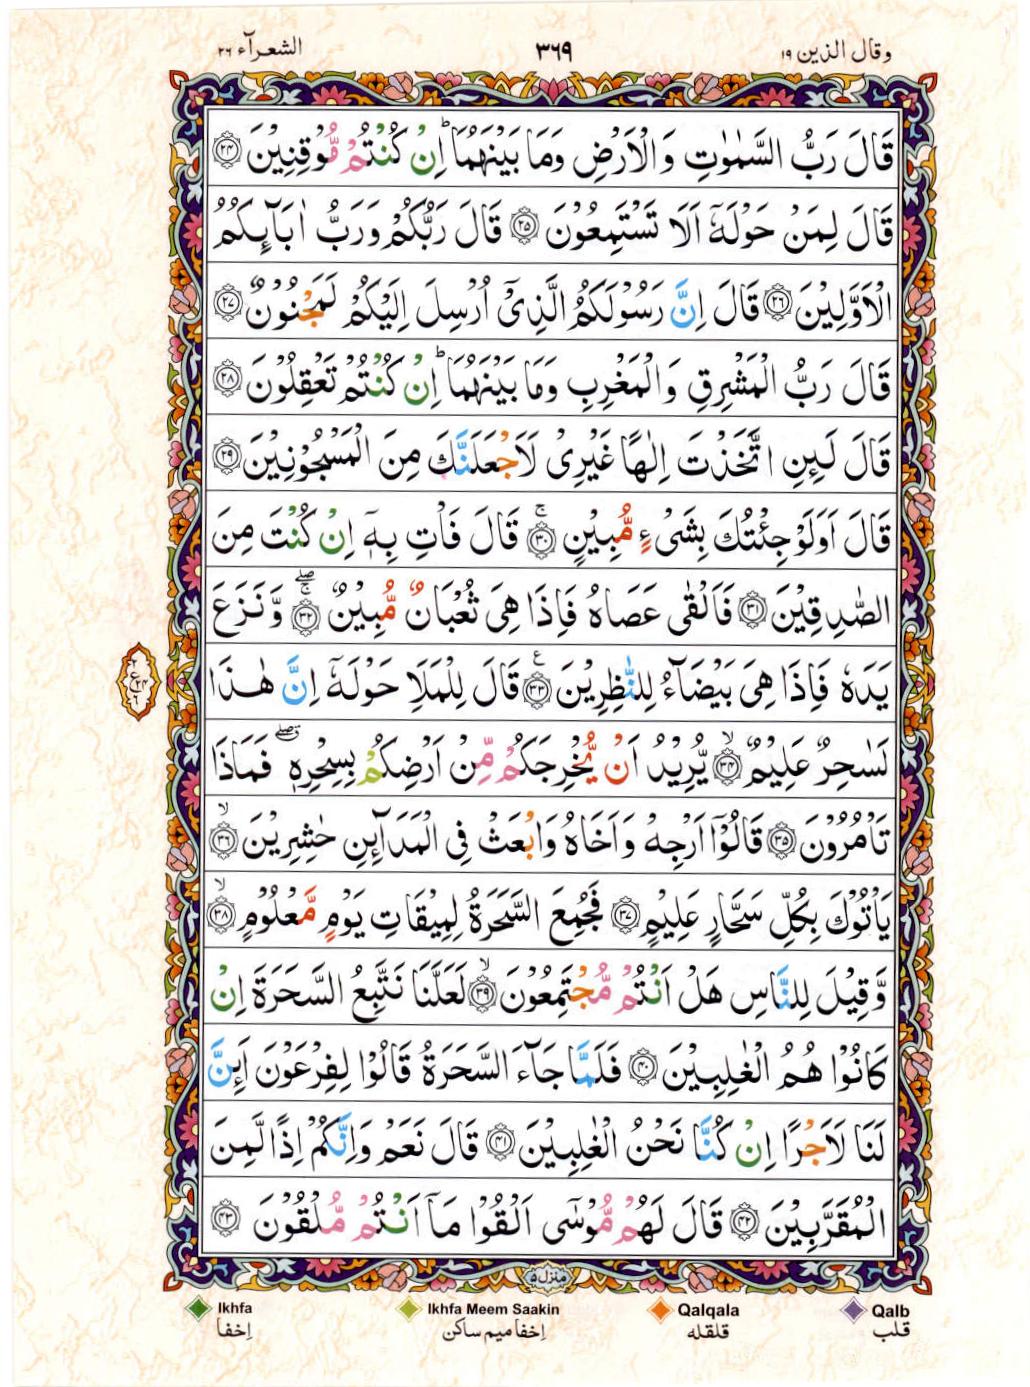 وقال الذين ١٩
٣٦٩
الشعرآء ٢٦
قَالَ رَبُّ السَّمٰوٰتِ وَالْاَرْضِ وَمَا بَيْنَهُمَا ؕ اِنْ كُنْتُمْ مُّوْقِنِيْنَ ﴿٢٤﴾
قَالَ لِمَنْ حَوْلَهٗۤ اَلَا تَسْتَمِعُوْنَ ﴿٢٥﴾ قَالَ رَبُّكُمْ وَرَبُّ اٰبَآئِكُمُ
الْاَوَّلِيْنَ ﴿٢٦﴾ قَالَ اِنَّ رَسُوْلَكُمُ الَّذِيْۤ اُرْسِلَ اِلَيْكُمْ لَمَجْنُوْنٌ ﴿٢٧﴾
قَالَ رَبُّ الْمَشْرِقِ وَالْمَغْرِبِ وَمَا بَيْنَهُمَا ؕ اِنْ كُنْتُمْ تَعْقِلُوْنَ ﴿٢٨﴾
قَالَ لَئِنِ اتَّخَذْتَ اِلٰهًا غَيْرِيْ لَاَجْعَلَنَّكَ مِنَ الْمَسْجُوْنِيْنَ ﴿٢٩﴾
قَالَ اَوَلَوْ جِئْتُكَ بِشَيْءٍ مُّبِيْنٍ ۚ ﴿٣٠﴾ قَالَ فَاْتِ بِهٖۤ اِنْ كُنْتَ مِنَ
الصّٰدِقِيْنَ ﴿٣١﴾ فَاَلْقٰى عَصَاهُ فَاِذَا هِيَ ثُعْبَانٌ مُّبِيْنٌ ۚۖ ﴿٣٢﴾ وَّنَزَعَ
يَدَهٗ فَاِذَا هِيَ بَيْضَآءُ لِلنّٰظِرِيْنَ ﴿٣٣﴾ ع قَالَ لِلْمَلَاِ حَوْلَهٗۤ اِنَّ هٰذَا
لَسٰحِرٌ عَلِيْمٌ ۙ ﴿٣٤﴾ يُّرِيْدُ اَنْ يُّخْرِجَكُمْ مِّنْ اَرْضِكُمْ بِسِحْرِهٖ ۖ فَمَاذَا
تَاْمُرُوْنَ ﴿٣٥﴾ قَالُوْۤا اَرْجِهْ وَاَخَاهُ وَابْعَثْ فِي الْمَدَآئِنِ حٰشِرِيْنَ ۙ ﴿٣٦﴾
يَاْتُوْكَ بِكُلِّ سَحَّارٍ عَلِيْمٍ ﴿٣٧﴾ فَجُمِعَ السَّحَرَةُ لِمِيْقَاتِ يَوْمٍ مَّعْلُوْمٍ ۙ ﴿٣٨﴾
وَّقِيْلَ لِلنَّاسِ هَلْ اَنْتُمْ مُّجْتَمِعُوْنَ ۙ ﴿٣٩﴾ لَعَلَّنَا نَتَّبِعُ السَّحَرَةَ اِنْ
كَانُوْا هُمُ الْغٰلِبِيْنَ ﴿٤٠﴾ فَلَمَّا جَآءَ السَّحَرَةُ قَالُوْا لِفِرْعَوْنَ اَئِنَّ
لَنَا لَاَجْرًا اِنْ كُنَّا نَحْنُ الْغٰلِبِيْنَ ﴿٤١﴾ قَالَ نَعَمْ وَاِنَّكُمْ اِذًا لَّمِنَ
الْمُقَرَّبِيْنَ ﴿٤٢﴾ قَالَ لَهُمْ مُّوْسٰۤى اَلْقُوْا مَاۤ اَنْتُمْ مُّلْقُوْنَ ﴿٤٣﴾
منزل ٥
Ikhfa Ikhfa Meem Saakin Qalqala Qalb
اِخفا اِخفا ميم ساكن قلقله قلب